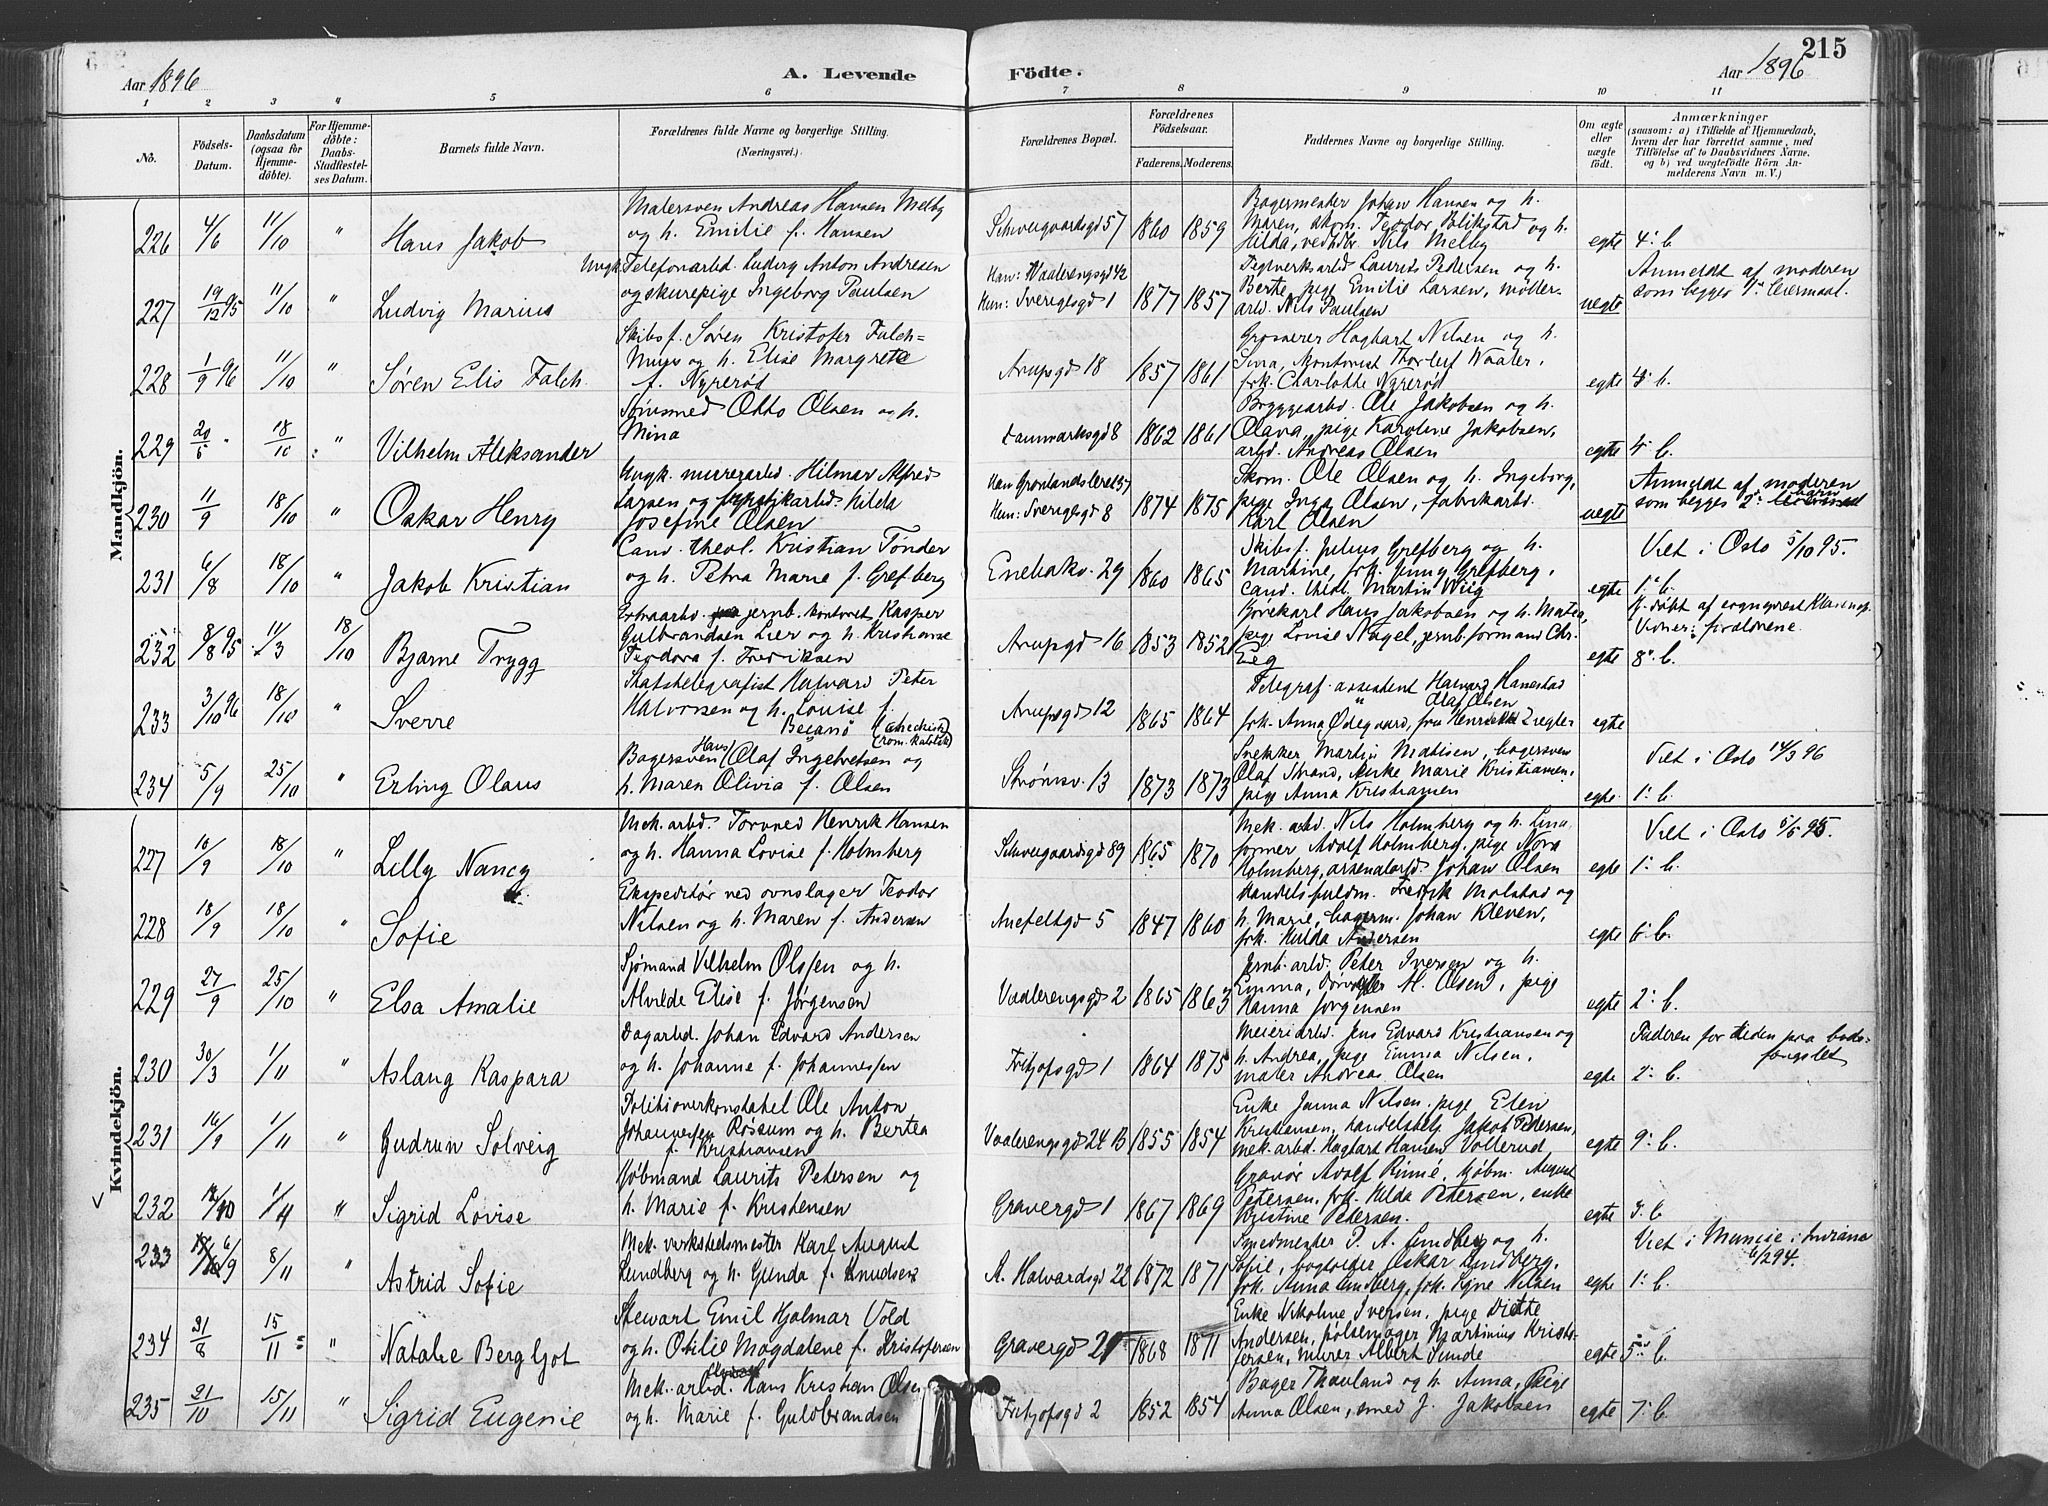 215
Aar 1896
A. Levende
Födte.
Aar 1896
1 2 3 " 5 6 7 8 9 10 11
No.
Födsels-Datum.
Daabsdatum (ogsaa for Hjemme-döbte).
For Hjemme-döbte: Daabs-Stadfæstel-ses Datum.
Barnets fulde Navn.
Forældrenes fulde Navne og borgerlige Stilling.
(Næringsvei.)
Forældrenes Bopæl.
Forældrenes Födselsaar.
Faderens. Moderens.
Faddernes Navne og borgerlige Stilling.
Om ægte eller uægte födt.
Anmærkninger
(saasom: a) i Tilfælde af Hjemmedaab, hvem der har forrettet samme, med Tilföielse af to Daabsvidners Navne, og b) ved uægtefödte Börn An-melderens Navn m. V.)
Mandkjön.
226 4/6 11/10 " Hans Jakob
Malersven Andreas Hansen Melby
og h. Emilie f. Hansen
Schweigaardsgd 57 1860 1859
Bagermester Johan Hansen og h.
Maren, skom. Teodor Blikstad og h.
Hilda, Nils Melby
egte 4' b.
227 19/12 95 11/10 " Ludvig Marius
Ungk. Telefonarbd. Ludvig Anton Andresen
og skurepige Ingeborg Paulsen
Han: Vaalerengsgd 42
Hun: Sverigesgd 1 1877 1857
Teglverksarbd Laurits Pedersen og h.
Berte, pige Emilie Larsen, møller-
arbd. Nils Paulsen
uegte
Anmeldt af moderen
som begges 1' leiermaal.
228 1/9 96 11/10 " Søren Elis Falch
Skibsf. Søren Kristofer Falch=
Muus og h. Elise Margrete
f. Nyrerød
Arupsgd 18 1857 1861
Grosserer Haghart Nilsen og h.
Sina, kontorist Thorleif Waaler,
frk. Charlotte Nyrerød
egte 4' b.
229 20/5 " 18/10 " Vilhelm Aleksander
Otto Olsen og h.
Mina
Danmarksgd 8 1862 1861
Bryggearbd. Ole Jakobsen og h.
Olava, pige Karoline Jakobsen,
arbd. Andreas Olsen
egte 4' b.
230 11/9 18/10 " Oskar Henry
Ungk. murerarbd. Hilmar Alfred
Larsen og fabrikarbd. Hilda
Josefine Olsen
Han Grønlandsleret 37
Hun: Sverigesgd 8 1874 1875
Skom. Ole Olsen og h. Ingeborg,
pige Inga Olsen, fabrikarbd.
Karl Olsen
uegte
Anmeldt af moderen
som begges 2' barn
231 6/8 18/10 " Jakob Kristian
Cand. theol. Kristian Tønder
og h. Petra Marie f. Grefberg
Enebakv. 29 1860 1865
Skibsf. Julius Grefberg og h.
Martine, frk. Jenny Grefberg,
cand. theol. Martin Wiig
egte
Viet i Oslo 5/10 95.
1' b.
232 8/8 95 11/3 18/10 Bjarne Trygg
jernb. kontorist Kasper
Gulbrandsen Lier og h. Kristianse
Teodora f. Fredriksen
Arupsgd 16 1853 1852
Kjørekarl Hans Jakobsen og h. Matea,
pige Lovise Nagel, jernb. formand Chr.
Eeg
egte
H. døbt af sogneprest Klavenæs
Vidner: forældrene.
8' b.
233 3/10 96 18/10 " Sverre
Statstelegrafist Halvard Peter
Halvorsen og h. Louise f.
(rom. katolsk)
Arupsgd 12 1865 1864
Telegraf-assistent Harvard Hanestad
Olaf Olsen
frk. Anna Ødegaard, fru Henriette Ziegler
egte
234 5/9 25/10 " Erling Olaus
Bagersven Hans Olaf Ingebretsen og
h. Maren Olivia f. Olsen
Strømsv. 13 1873 1873
Snekker Martin Matisen, bagersven
Olaf Strand, enke Marie Kristiansen,
pige Anna Kristiansen
egte
Viet i Oslo 14/3 96
1' b.
Kvindekjön.
227 10/9 18/10 " Lilly Nancy
Mek. arbd. Torvald Henrik Hansen
og h. Hanna Lovise f. Holmberg
Schweigaardsgd 89 1865 1870
Mek. arbd. Nils Holmberg og h. Lina,
former Adolf Holmberg, pige Nora
Holmberg, arsenalarbd. Johan Olsen
egte
Viet i Oslo 5/5 95.
1' b.
228 18/9 18/10 " Sofie
Ekspeditør ved ovnslager Teodor
Nilsen og h. Maren f. Andersen
Anefeltsgd 5 1847 1860
Handelsfuldm. Fredrik Molstad og
h. Marie, bagerm. Johan Kleven,
frk. Hulda Andersen
egte 6' b.
229 27/9 25/10 " Elsa Amalie
Sjømand Vilhelm Olssen og h.
Alvilde Elise f. Jørgensen
Vaalerengsgd 2 1865 1863
Jernb. arbd. Peter Iversen og h.
Emma, A. Olsen, pige
Hanna Jørgensen
egte 2' b.
230 30/3 1/11 " Aslaug Kaspara
Dagarbd. Johan Edvard Andersen
og h. Johanne f. Johannessen
Fritjofsgd 1 1864 1875
Meieriarbd. Jens Edvard Kristiansen og
h. Andrea, pige Emma Nilsen,
maler Andreas Olsen
egte
Faderen for tiden paa bods-
fengslet
2' b.
231 16/9 1/11 " Gudrun Solveig
Politioverkonstabel Ole Anton
Johannesen Røssum og h. Bertea
f. Kristiansen
Vaalerengsgd 24 B 1855 1854
Enke Janna Nilsen, pige Elen
Kristiansen, handelsbetj. Jakob Pedersen,
mek. arbd. Haghart Hansen Vollerud
egte 9' b.
232 1/11 " Sigrid Lovise
Kjøbmand Laurits Petersen og
h. Marie f. Kristensen
Gravergd 1 1867 1869
Gravør Adolf Rinne, kjøbm. August
Petersen, frk. Hilda Petersen, enke
Kristine Petersen.
egte 3' b
233 6/9 8/11 " Astrid Sofie
Mek. verkstedsmester Karl August
Lundberg og h. Gunda f. Knudsen
St. Halvardsgd 22 1872 1871
Smedmester P. A. Lundberg og h.
Sofie, bogholder Oskar Lundberg,
frk. Anna Lundberg, frk. Signe Nilsen
egte
Viet i Muncie i Indiana
6/2 94.
1' b.
234 31/8 15/11 " Natalie Bergljot
Stewart Emil Hjalmar Vold
og h. Otilie Magdalene f. Kristofersen
Gravergd 21 1868 1871
Enke Nikoline Iversen, pige Dikke
Andersen, pølsemager Martinius Kristo-
fersen, murer Albert Sunde
egte 5' b.
235 21/10 15/11 " Sigrid Eugenie
Mek. arbd. Hans Kristian Olsen
og h. Marie f. Guldbrandsen
Fritjofsgd 2 1852 1854
Bager Thauland og h. Anna, pige
Anna Olsen, smed J. Jakobsen
egte 7' b.